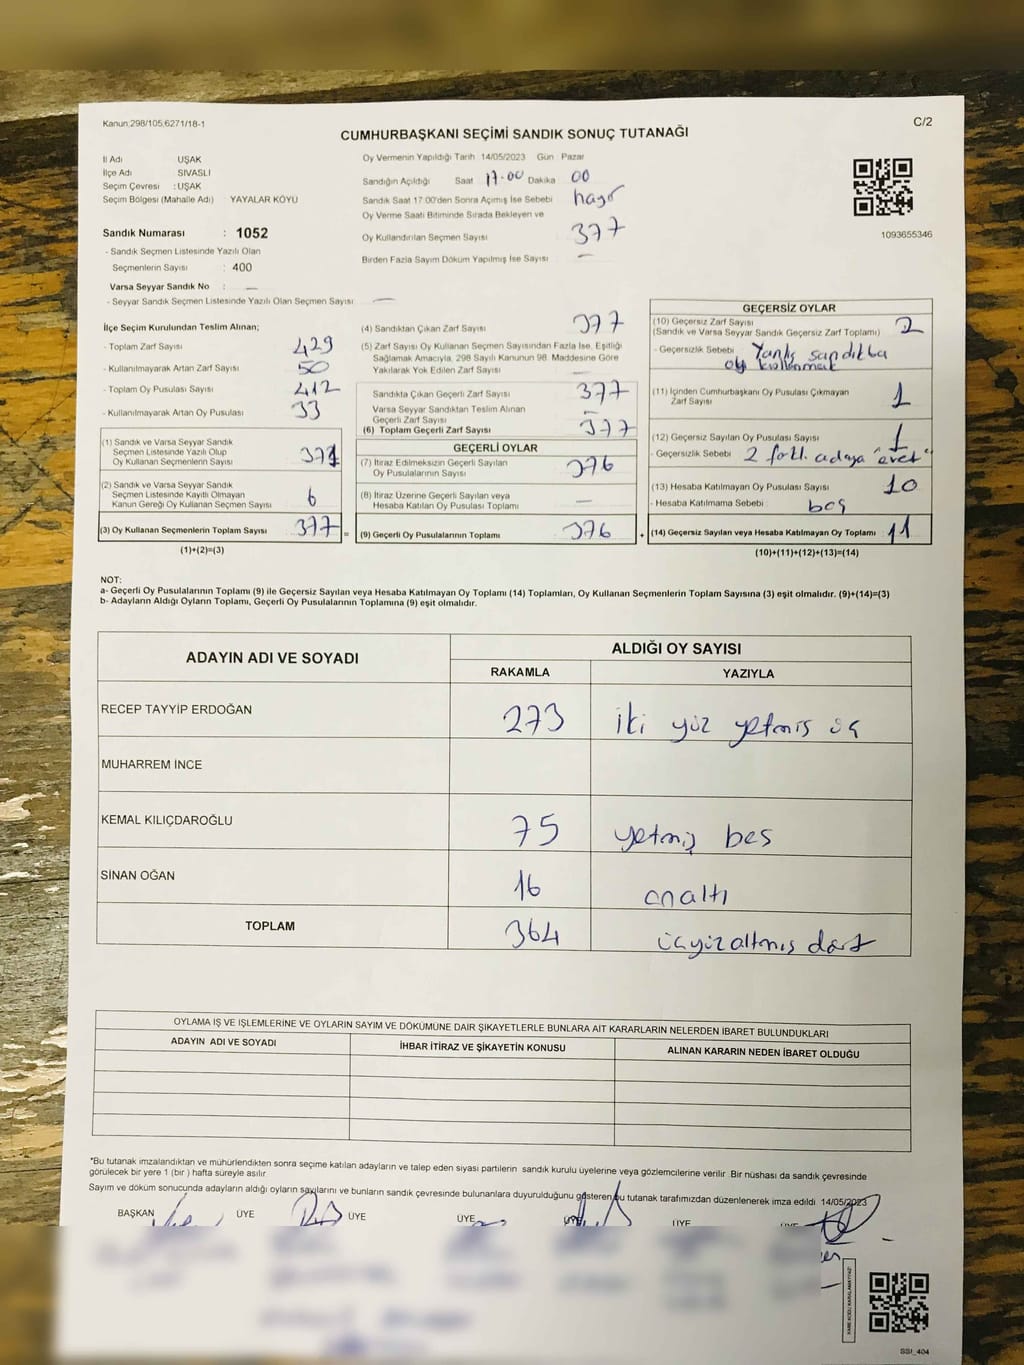 Kanun;298/105,6271/18-1
C/2
CUMHURBAŞKANI SEÇİMİ SANDIK SONUÇ TUTANAĞI
İl Adı UŞAK
İlçe Adı SİVASLI
Seçim Çevresi : UŞAK
Seçim Bölgesi (Mahalle Adı) YAYALAR KÖYÜ
Sandık Numarası : 1052
- Sandık Seçmen Listesinde Yazılı Olan
Seçmenlerin Sayısı : 400
Varsa Seyyar Sandık No : —
- Seyyar Sandık Seçmen Listesinde Yazılı Olan Seçmen Sayısı —
Oy Vermenin Yapıldığı Tarih 14/05/2023 Gün Pazar
Sandığın Açıldığı Saat 17.00 Dakika 00
Sandık Saat 17:00'den Sonra Açımış İse Sebebi hayır
Oy Verme Saati Bitiminde Sırada Bekleyen ve
Oy Kullandırılan Seçmen Sayısı 377
Birden Fazla Sayım Döküm Yapılmış İse Sayısı —
1093655346
İlçe Seçim Kurulundan Teslim Alınan;
- Toplam Zarf Sayısı 429
- Kullanılmayarak Artan Zarf Sayısı 50
- Toplam Oy Pusulası Sayısı 412
- Kullanılmayarak Artan Oy Pusulası 33
(1) Sandık ve Varsa Seyyar Sandık
Seçmen Listesinde Yazılı Olup
Oy Kullanan Seçmenlerin Sayısı 371
(2) Sandık ve Varsa Seyyar Sandık
Seçmen Listesinde Kayıtlı Olmayan
Kanun Gereği Oy Kullanan Seçmen Sayısı 6
(3) Oy Kullanan Seçmenlerin Toplam Sayısı 377 =
(1)+(2)=(3)
(4) Sandıktan Çıkan Zarf Sayısı 377
(5) Zarf Sayısı Oy Kullanan Seçmen Sayısından Fazla İse, Eşitliği
Sağlamak Amacıyla, 298 Sayılı Kanunun 98. Maddesine Göre
Yakılarak Yok Edilen Zarf Sayısı —
Sandıkta Çıkan Geçerli Zarf Sayısı 377
Varsa Seyyar Sandıktan Teslim Alınan
Geçerli Zarf Sayısı —
(6) Toplam Geçerli Zarf Sayısı 377
GEÇERLİ OYLAR
(7) İtiraz Edilmeksizin Geçerli Sayılan
Oy Pusulalarının Sayısı 376
(8) İtiraz Üzerine Geçerli Sayılan veya
Hesaba Katılan Oy Pusulası Toplamı —
(9) Geçerli Oy Pusulalarının Toplamı 376 +
GEÇERSİZ OYLAR
(10) Geçersiz Zarf Sayısı
(Sandık ve Varsa Seyyar Sandık Geçersiz Zarf Toplamı) 2
- Geçersizlik Sebebi Yanlış sandıkta
oy kullanmak
(11) İçinden Cumhurbaşkanı Oy Pusulası Çıkmayan
Zarf Sayısı 1
(12) Geçersiz Sayılan Oy Pusulası Sayısı 1
- Geçersizlik Sebebi 2 farklı adaya "evet"
(13) Hesaba Katılmayan Oy Pusulası Sayısı 10
- Hesaba Katılmama Sebebi boş
(14) Geçersiz Sayılan veya Hesaba Katılmayan Oy Toplamı 11
(10)+(11)+(12)+(13)=(14)
NOT:
a- Geçerli Oy Pusulalarının Toplamı (9) ile Geçersiz Sayılan veya Hesaba Katılmayan Oy Toplamı (14) Toplamları, Oy Kullanan Seçmenlerin Toplam Sayısına (3) eşit olmalıdır. (9)+(14)=(3)
b- Adayların Aldığı Oyların Toplamı, Geçerli Oy Pusulalarının Toplamına (9) eşit olmalıdır.
ADAYIN ADI VE SOYADI ALDIĞI OY SAYISI
RAKAMLA YAZIYLA
RECEP TAYYİP ERDOĞAN 273 iki yüz yetmiş üç
MUHARREM İNCE
KEMAL KILIÇDAROĞLU 75 yetmiş beş
SİNAN OĞAN 16 onaltı
TOPLAM 364 üçyüzaltmış dört
OYLAMA İŞ VE İŞLEMLERİNE VE OYLARIN SAYIM VE DÖKÜMÜNE DAİR ŞİKAYETLERLE BUNLARA AİT KARARLARIN NELERDEN İBARET BULUNDUKLARI
ADAYIN ADI VE SOYADI İHBAR İTİRAZ VE ŞİKAYETİN KONUSU ALINAN KARARIN NEDEN İBARET OLDUĞU
*Bu tutanak imzalandıktan ve mühürlendikten sonra seçime katılan adayların ve talep eden siyasi partilerin sandık kurulu üyelerine veya gözlemcilerine verilir. Bir nüshası da sandık çevresinde
görülecek bir yere 1 (bir) hafta süreyle asılır.
Sayım ve döküm sonucunda adayların aldığı oyların sayılarını ve bunların sandık çevresinde bulunanlara duyurulduğunu gösteren bu tutanak tarafımızdan düzenlenerek imza edildi. 14/05/2023
BAŞKAN ÜYE ÜYE ÜYE ÜYE ÜYE ÜYE
KARE KODU KARALAMAYINIZ!
SSI_404